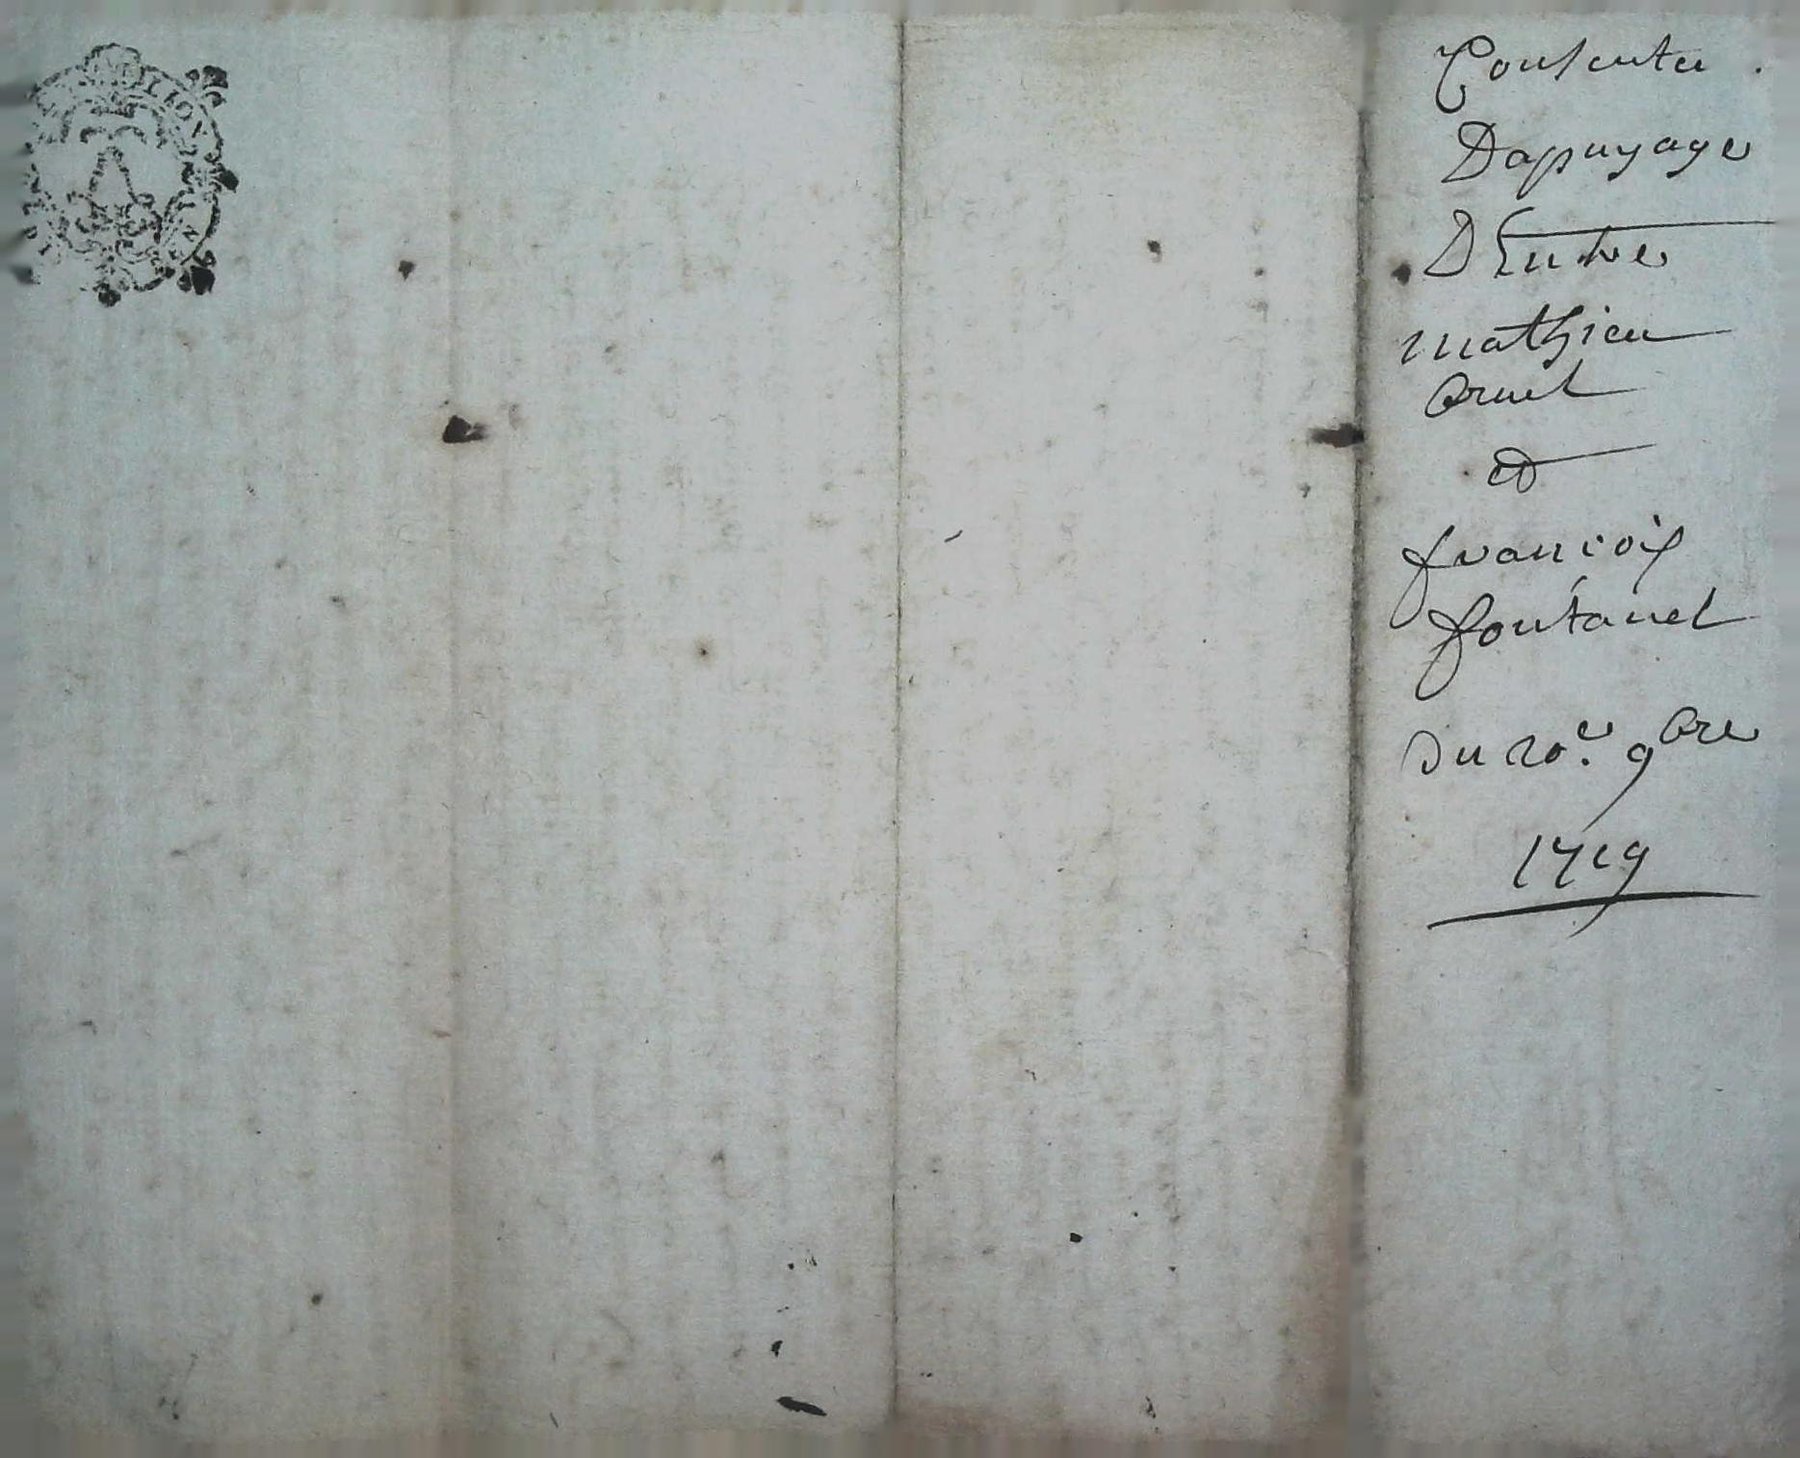 Consentu
Dapuyage
D Entre
mathieu
Bruel
et
françois
fontanel
Du 20e. 9bre
1719